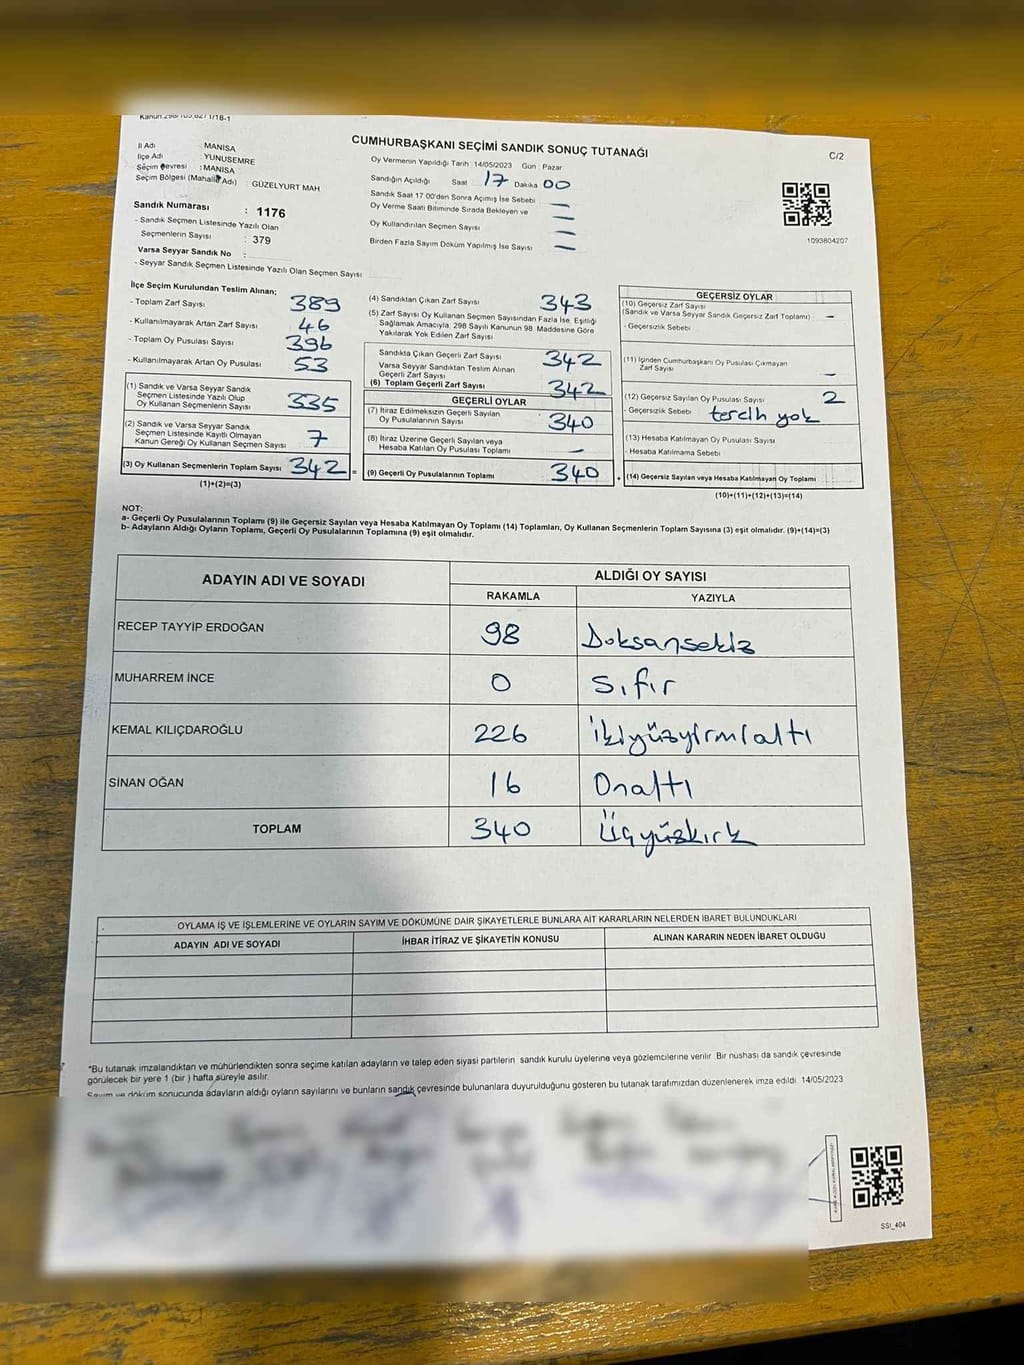 CUMHURBAŞKANI SEÇİMİ SANDIK SONUÇ TUTANAĞI
C/2
İl Adı : MANİSA
İlçe Adı : YUNUSEMRE
Seçim Çevresi : MANİSA
Seçim Bölgesi (Mahalle Adı) : GÜZELYURT MAH
Sandık Numarası : 1176
- Sandık Seçmen Listesinde Yazılı Olan
Seçmenlerin Sayısı : 379
Varsa Seyyar Sandık No :
- Seyyar Sandık Seçmen Listesinde Yazılı Olan Seçmen Sayısı
Oy Vermenin Yapıldığı Tarih :14/05/2023 Gün : Pazar
Sandığın Açıldığı Saat 17 Dakika 00
Sandık Saat 17 00'den Sonra Açılmış İse Sebebi —
Oy Verme Saati Bitiminde Sırada Bekleyen ve —
Oy Kullandırılan Seçmen Sayısı —
Birden Fazla Sayım Döküm Yapılmış İse Sayısı —
1093804207
İlçe Seçim Kurulundan Teslim Alınan;
- Toplam Zarf Sayısı 389
- Kullanılmayarak Artan Zarf Sayısı 46
- Toplam Oy Pusulası Sayısı 396
- Kullanılmayarak Artan Oy Pusulası 53
(1) Sandık ve Varsa Seyyar Sandık
Seçmen Listesinde Yazılı Olup
Oy Kullanan Seçmenlerin Sayısı 335
(2) Sandık ve Varsa Seyyar Sandık
Seçmen Listesinde Kayıtlı Olmayan
Kanun Gereği Oy Kullanan Seçmen Sayısı 7
(3) Oy Kullanan Seçmenlerin Toplam Sayısı 342 =
(1)+(2)=(3)
(4) Sandıktan Çıkan Zarf Sayısı 343
(5) Zarf Sayısı Oy Kullanan Seçmen Sayısından Fazla İse, Eşitliği
Sağlamak Amacıyla, 298 Sayılı Kanunun 98. Maddesine Göre
Yakılarak Yok Edilen Zarf Sayısı
Sandıkta Çıkan Geçerli Zarf Sayısı 342
Varsa Seyyar Sandıktan Teslim Alınan
Geçerli Zarf Sayısı
(6) Toplam Geçerli Zarf Sayısı 342
GEÇERLİ OYLAR
(7) İtiraz Edilmeksizin Geçerli Sayılan
Oy Pusulalarının Sayısı 340
(8) İtiraz Üzerine Geçerli Sayılan veya
Hesaba Katılan Oy Pusulası Toplamı —
(9) Geçerli Oy Pusulalarının Toplamı 340 +
GEÇERSİZ OYLAR
(10) Geçersiz Zarf Sayısı
(Sandık ve Varsa Seyyar Sandık Geçersiz Zarf Toplamı) —
- Geçersizlik Sebebi
(11) İçinden Cumhurbaşkanı Oy Pusulası Çıkmayan
Zarf Sayısı —
(12) Geçersiz Sayılan Oy Pusulası Sayısı 2
- Geçersizlik Sebebi tercih yok
(13) Hesaba Katılmayan Oy Pusulası Sayısı
- Hesaba Katılmama Sebebi
(14) Geçersiz Sayılan veya Hesaba Katılmayan Oy Toplamı
(10)+(11)+(12)+(13)=(14)
NOT:
a- Geçerli Oy Pusulalarının Toplamı (9) ile Geçersiz Sayılan veya Hesaba Katılmayan Oy Toplamı (14) Toplamları, Oy Kullanan Seçmenlerin Toplam Sayısına (3) eşit olmalıdır. (9)+(14)=(3)
b- Adayların Aldığı Oyların Toplamı, Geçerli Oy Pusulalarının Toplamına (9) eşit olmalıdır.
ADAYIN ADI VE SOYADI ALDIĞI OY SAYISI
RAKAMLA YAZIYLA
RECEP TAYYİP ERDOĞAN 98 Doksansekiz
MUHARREM İNCE 0 Sıfır
KEMAL KILIÇDAROĞLU 226 İkiyüzyirmialtı
SİNAN OĞAN 16 Onaltı
TOPLAM 340 Üçyüzkırk
OYLAMA İŞ VE İŞLEMLERİNE VE OYLARIN SAYIM VE DÖKÜMÜNE DAİR ŞİKAYETLERLE BUNLARA AİT KARARLARIN NELERDEN İBARET BULUNDUKLARI
ADAYIN ADI VE SOYADI İHBAR İTİRAZ VE ŞİKAYETİN KONUSU ALINAN KARARIN NEDEN İBARET OLDUĞU
*Bu tutanak imzalandıktan ve mühürlendikten sonra seçime katılan adayların ve talep eden siyasi partilerin sandık kurulu üyelerine veya gözlemcilerine verilir. Bir nüshası da sandık çevresinde
görülecek bir yere 1 (bir ) hafta süreyle asılır.
Sayım ve döküm sonucunda adayların aldığı oyların sayılarını ve bunların sandık çevresinde bulunanlara duyurulduğunu gösteren bu tutanak tarafımızdan düzenlenerek imza edildi 14/05/2023
SSI_404